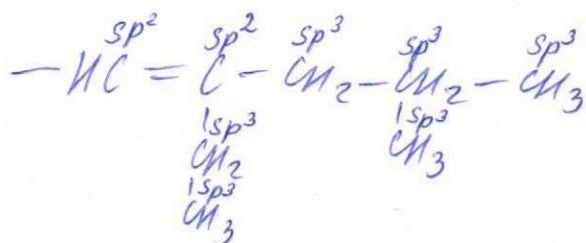 sp² sp² sp³ sp³ sp³
— HC = C – CH₂ – CH₂ – CH₃
sp³ sp³
CH₂ CH₃
sp³
CH₃